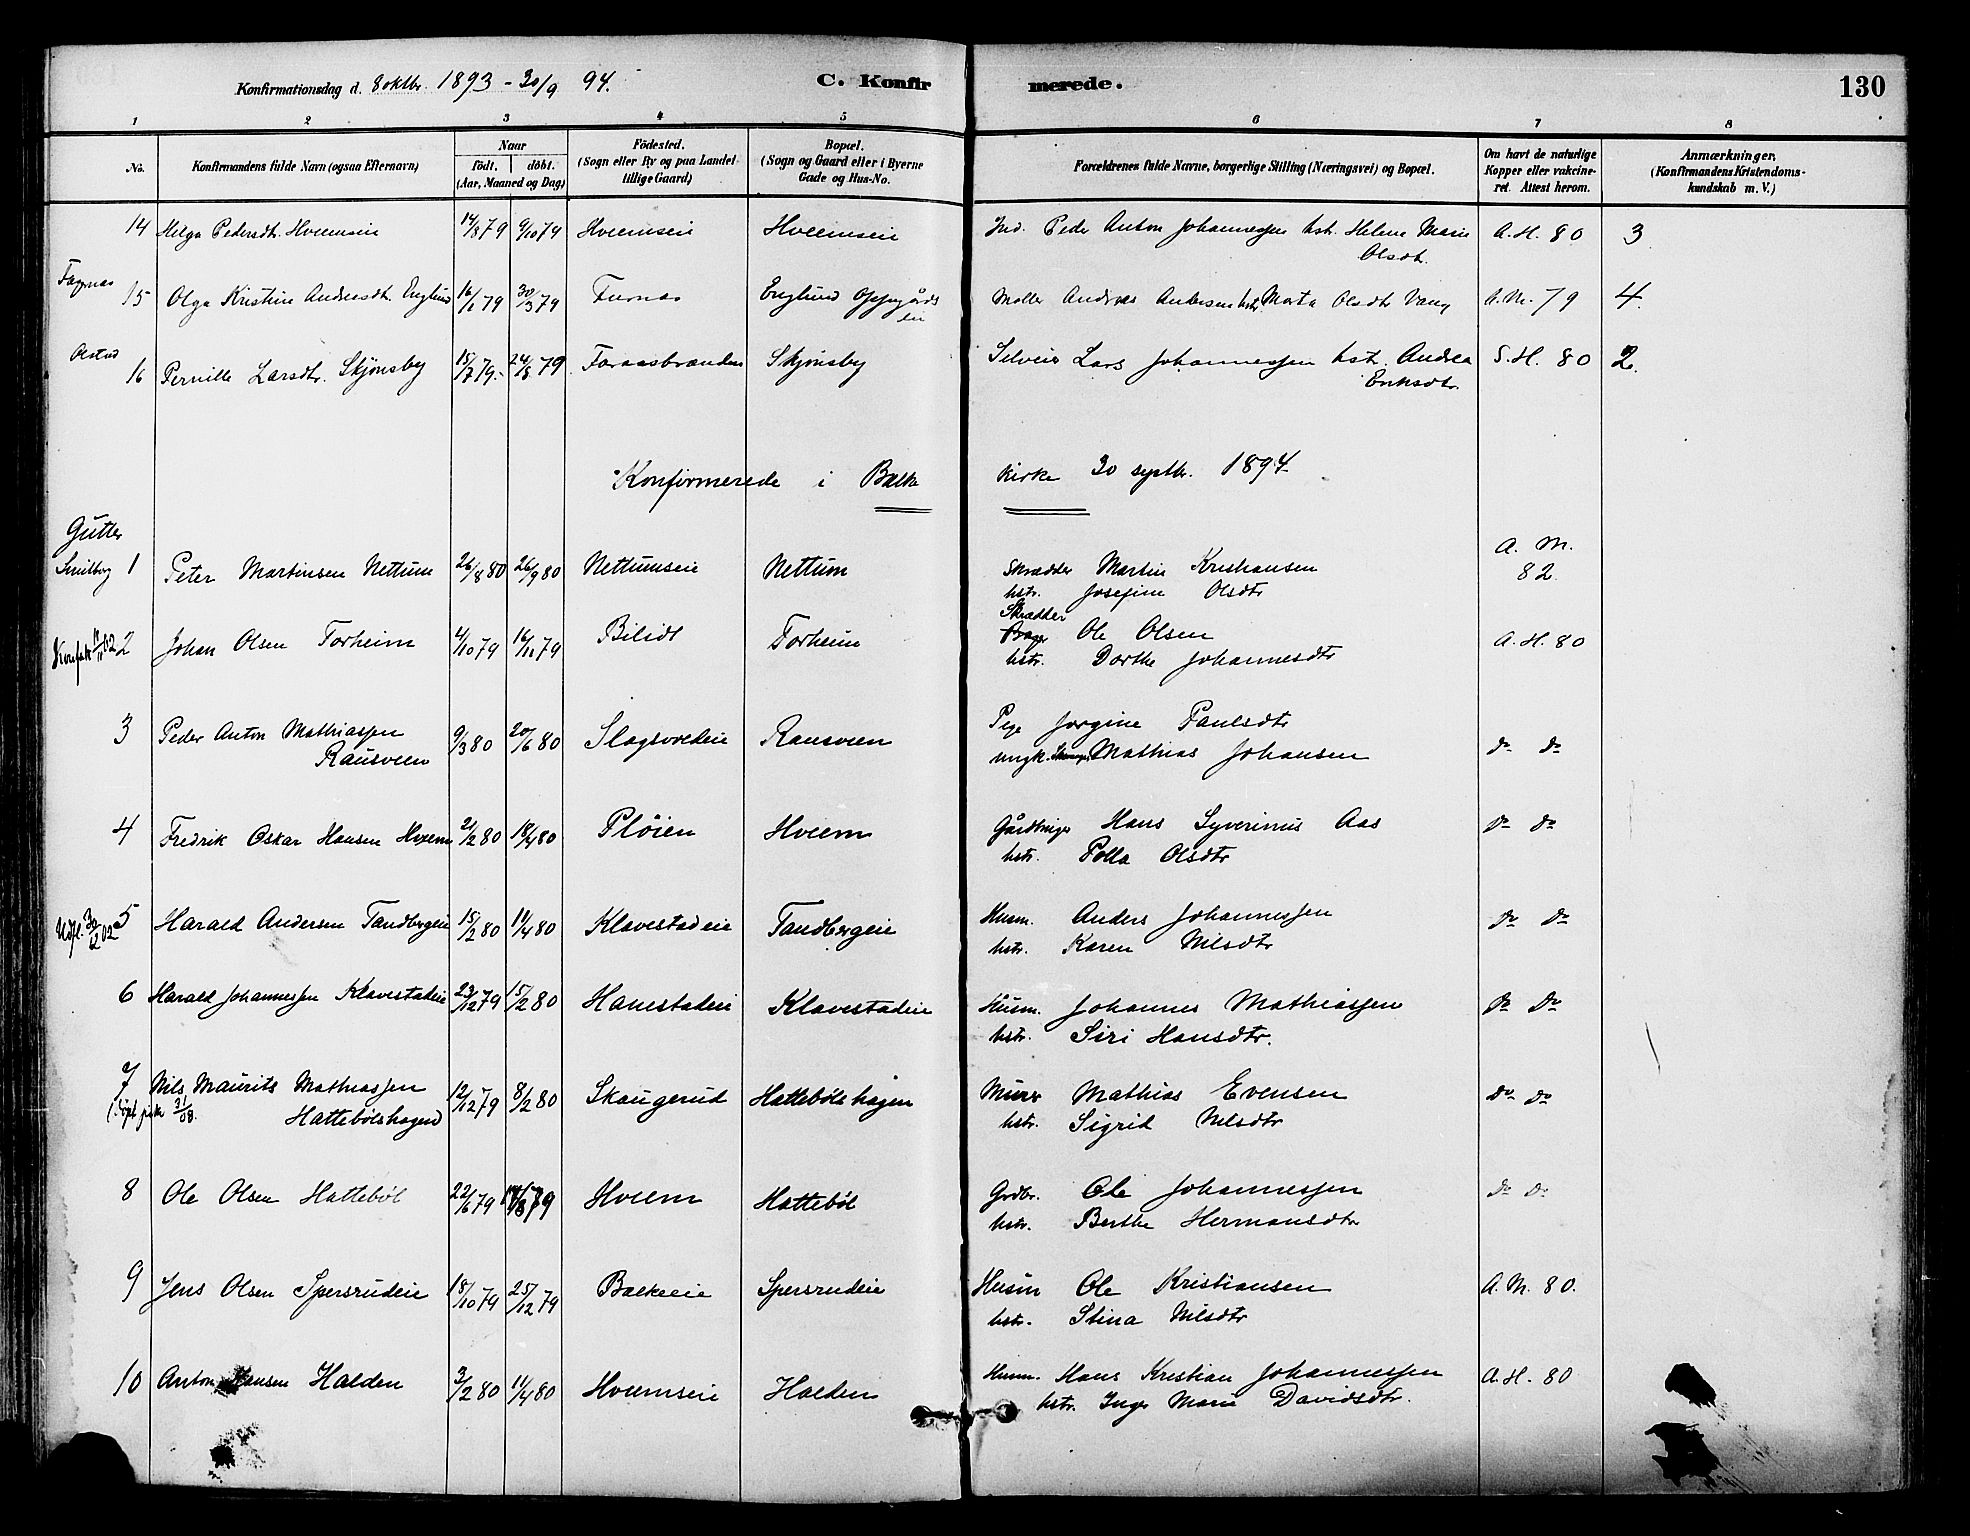 Konfirmationsdag d. 8 oktbr. 1893 - 30/9 94.
C. Konfirmerede.
130
1 2 3 4 5 6 7 8
No.
Konfirmandens fulde Navn (ogsaa Efternavn)
Naar
født. døbt.
(Aar, Maaned og Dag)
Fødested.
(Sogn eller By og paa Landet
tillige Gaard)
Bopæl.
(Sogn og Gaard eller i Byerne
Gade og Hus-No.
Forældrenes fulde Navne, borgerlige Stilling (Næringsvei) og Bopæl.
Om havt de naturlige
Kopper eller vakcine-
ret. Attest herom.
Anmærkninger,
(Konfirmandens Kristendoms-
kundskab m. V.)
14 Helga Pedersdtr. Hveemseie 14/8 79 9/10 79 Hveemseie Hveemseie Ind. Peder Anton Johannessen hstr. Helene Marie A. H. 80 3
Olsdt.
Furnæs
15 Olga Kristine Andersdtr. Englund 16/1 79 30/3 79 Furnæs Englund Oppegårds Møller Andreas Andersen hstr. Marta Olsdtr Vang A. M. 79 4.
eie
16 Pernille Larsdtr. Skjønsby 15/7 79 24/8 79 Foraasbranden Skjønsby Selveier Lars Johannessen hstr. Andrea S. H. 80 2.
Eriksdtr.
Konfirmerede i Balke kirke 30 septbr. 1894.
Gutter
Smilby 1 Peter Martinsen Nettum 26/8 80 26/9 80 Nettumseie Nettum Skrædder Martin Kristiansen A. M.
hstr. Josefine Olsdtr 82.
2 Johan Olsen Forheim 4/10 79 16/11 79 Bilidt Forheim Skrædder Ole Olsen A. H. 80
hstr. Dorthe Johannesdtr
3 Peder Anton Mathiassen 9/3 80 20/6 80 Slagsvoldeie Rausveen Pige Jorgine Paulsdtr
Rausveen ungk. Mathias Johansen do do
4 Fredrik Oskar Hansen Hveem 21/2 80 18/4 80 Pløien Hveem Gårdbruger Hans Syverinus Aas do do
hstr. Polla Olsdtr
5 Harald Andersen Tandbergeie 15/2 80 11/4 80 Klavestadeie Tandbergeie Husm. Anders Johannessen do do
hstr. Karen Nilsdtr
6 Harald Johannessen Klavestadeie 23/12 79 15/2 80 Hanestadeie Klavestadeie Husm. Johannes Mathiassen do do
hstr. Siri Hansdtr.
7 Nils Maurits Mathiassen 12/12 79 8/2 80 Skaugerud Hattebølshagen Murer Mathias Evensen do do
Hattebølshagen hstr. Sigrid Nilsdtr
8 Ole Olsen Hattebøl 22/6 79 17/8 79 Hveem Hattebøl Grdbr. Ole Johannessen do do
hstr. Berthe Hermansdtr
9 Jens Olsen Spersrudeie 18/10 79 25/12 79 Balkeeie Spersrudeie Husm Ole Kristiansen A. M. 80.
hstr. Stina Nilsdtr
10 Anton Hansen Halden 3/2 80 11/4 80 Hveemseie Halden Husm. Hans Kristian Johannessen A. H. 80
hstr. Inger Marie Davidsdtr.